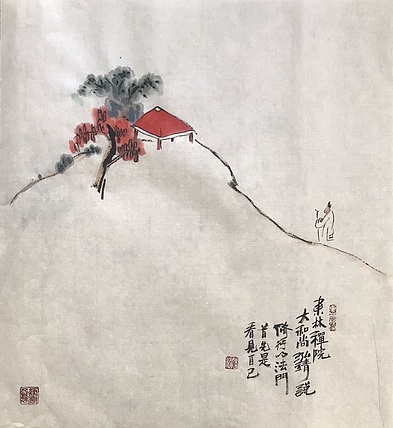 東林禪院
大和尚弘精說
修行的法門
首先是
看見自己